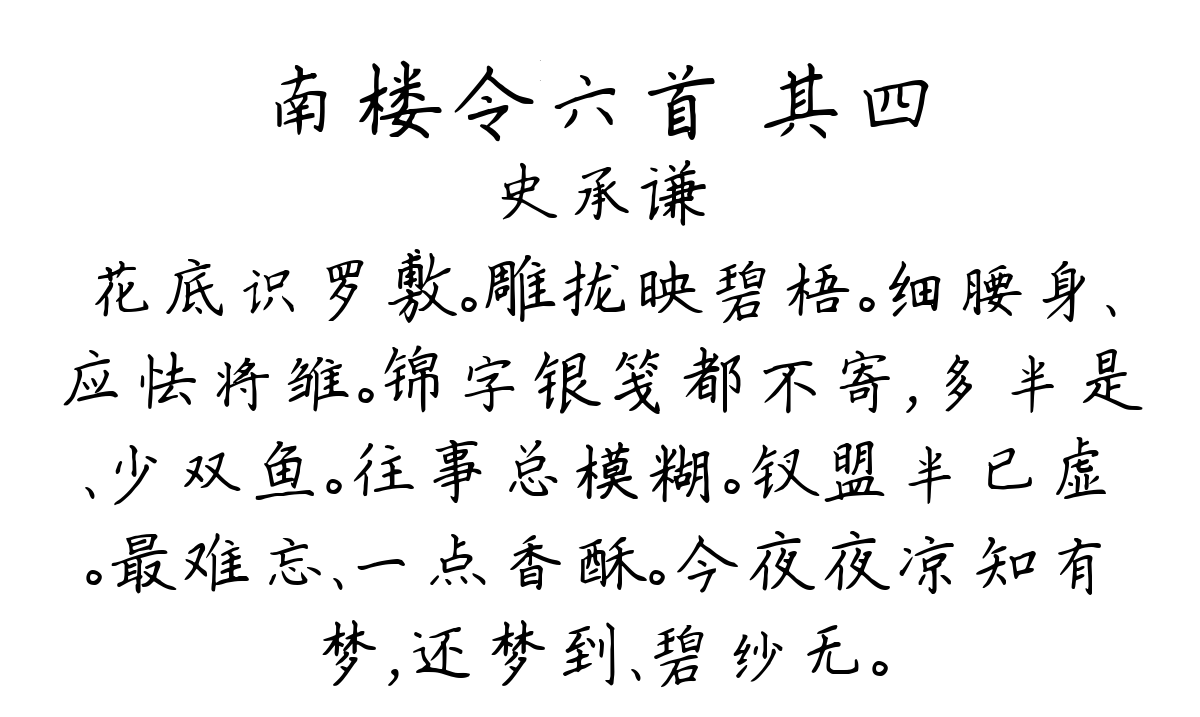 南楼令六首 其四
史承谦
花底识罗敷。雕拢映碧梧。细腰身、
应怯将雏。锦字银笺都不寄,多半是
、少双鱼。往事总模糊。钗盟半已虚
。最难忘、一点香酥。今夜夜凉知有
梦,还梦到、碧纱无。